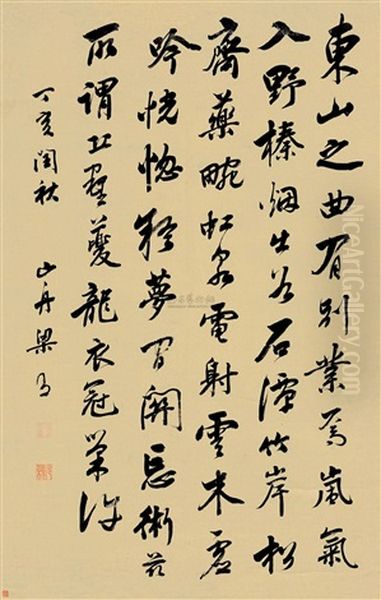 東山之曲有別業焉嵐氣
入野榛烟出谷石潭竹岸松
齋藥畹虹泉電射雲木虛
吟恍惚疑夢間開忘術茲
所謂丘壑夔龍衣冠巢許
丁亥閏秋 山舟梁
NiceArtGallery.com